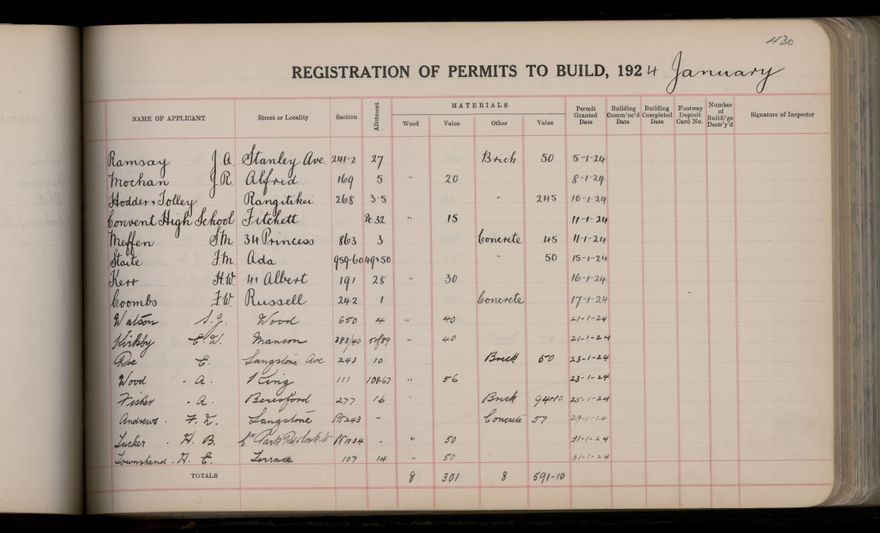 430
REGISTRATION OF PERMITS TO BUILD, 1924 January
NAME OF APPLICANT Street or Locality Section Allotment MATERIALS Wood Value Other Value Permit Granted Date Building Comm'nc'd Date Building Completed Date Footway Deposit Card No. Number of Buildi'gs Destr'y'd Signature of Inspector
Ramsay J.A. Stanley Ave 241-2 27 Brick 50 5-1-24
Mochan J.R. Alfred 169 5 " 20 8-1-24
Hodder & Tolley Rangitikei 268 3-5 " 245 10-1-24
Convent High School Fitchett Pt 32 " 15 11-1-24
Meffen S.M. 34 Princess 863 3 Concrete 45 11-1-24
Staite F.M. Ada 959-60 49&50 " 50 15-1-24
Kerr H.W. 41 Albert 191 28 " 30 16-1-24
Coombs F.W. Russell 242 1 Concrete 17-1-24
Watson Wood 650 4 " 40 21-1-24
Kirkby E.W. Manson 383/40 " 40 21-1-24
Roe E. Langstone Ave 243 10 Brick 50 23-1-24
Wood . A. King 111 " 56 23-1-24
Fisher . A. Beresford 277 16 Brick 94-10 25-1-24
Andrews . F. Langstone Pt 243 - Concrete 57 29-1-24
Tucker . H. B. Park - " 50 31-1-24
Townshend . H. E. Terrace 107 14 " 50 31-1-24
TOTALS 8 301 8 591-10